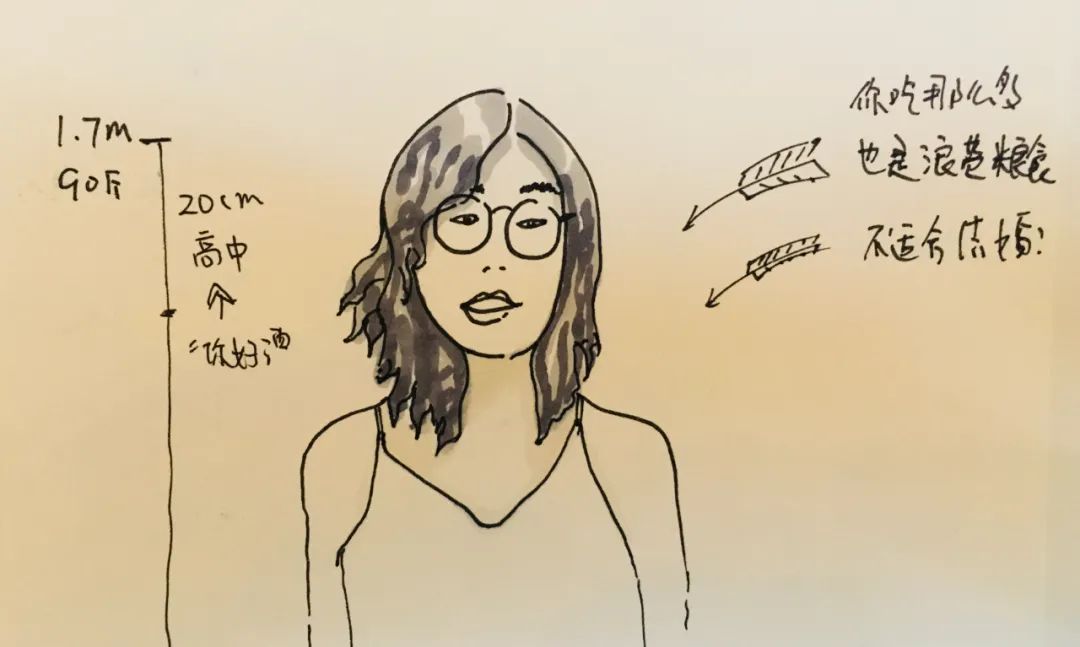 1.7m
90斤
20cm
高中
"你好酒
你吃那么多
也是浪费粮食
不适合结婚!